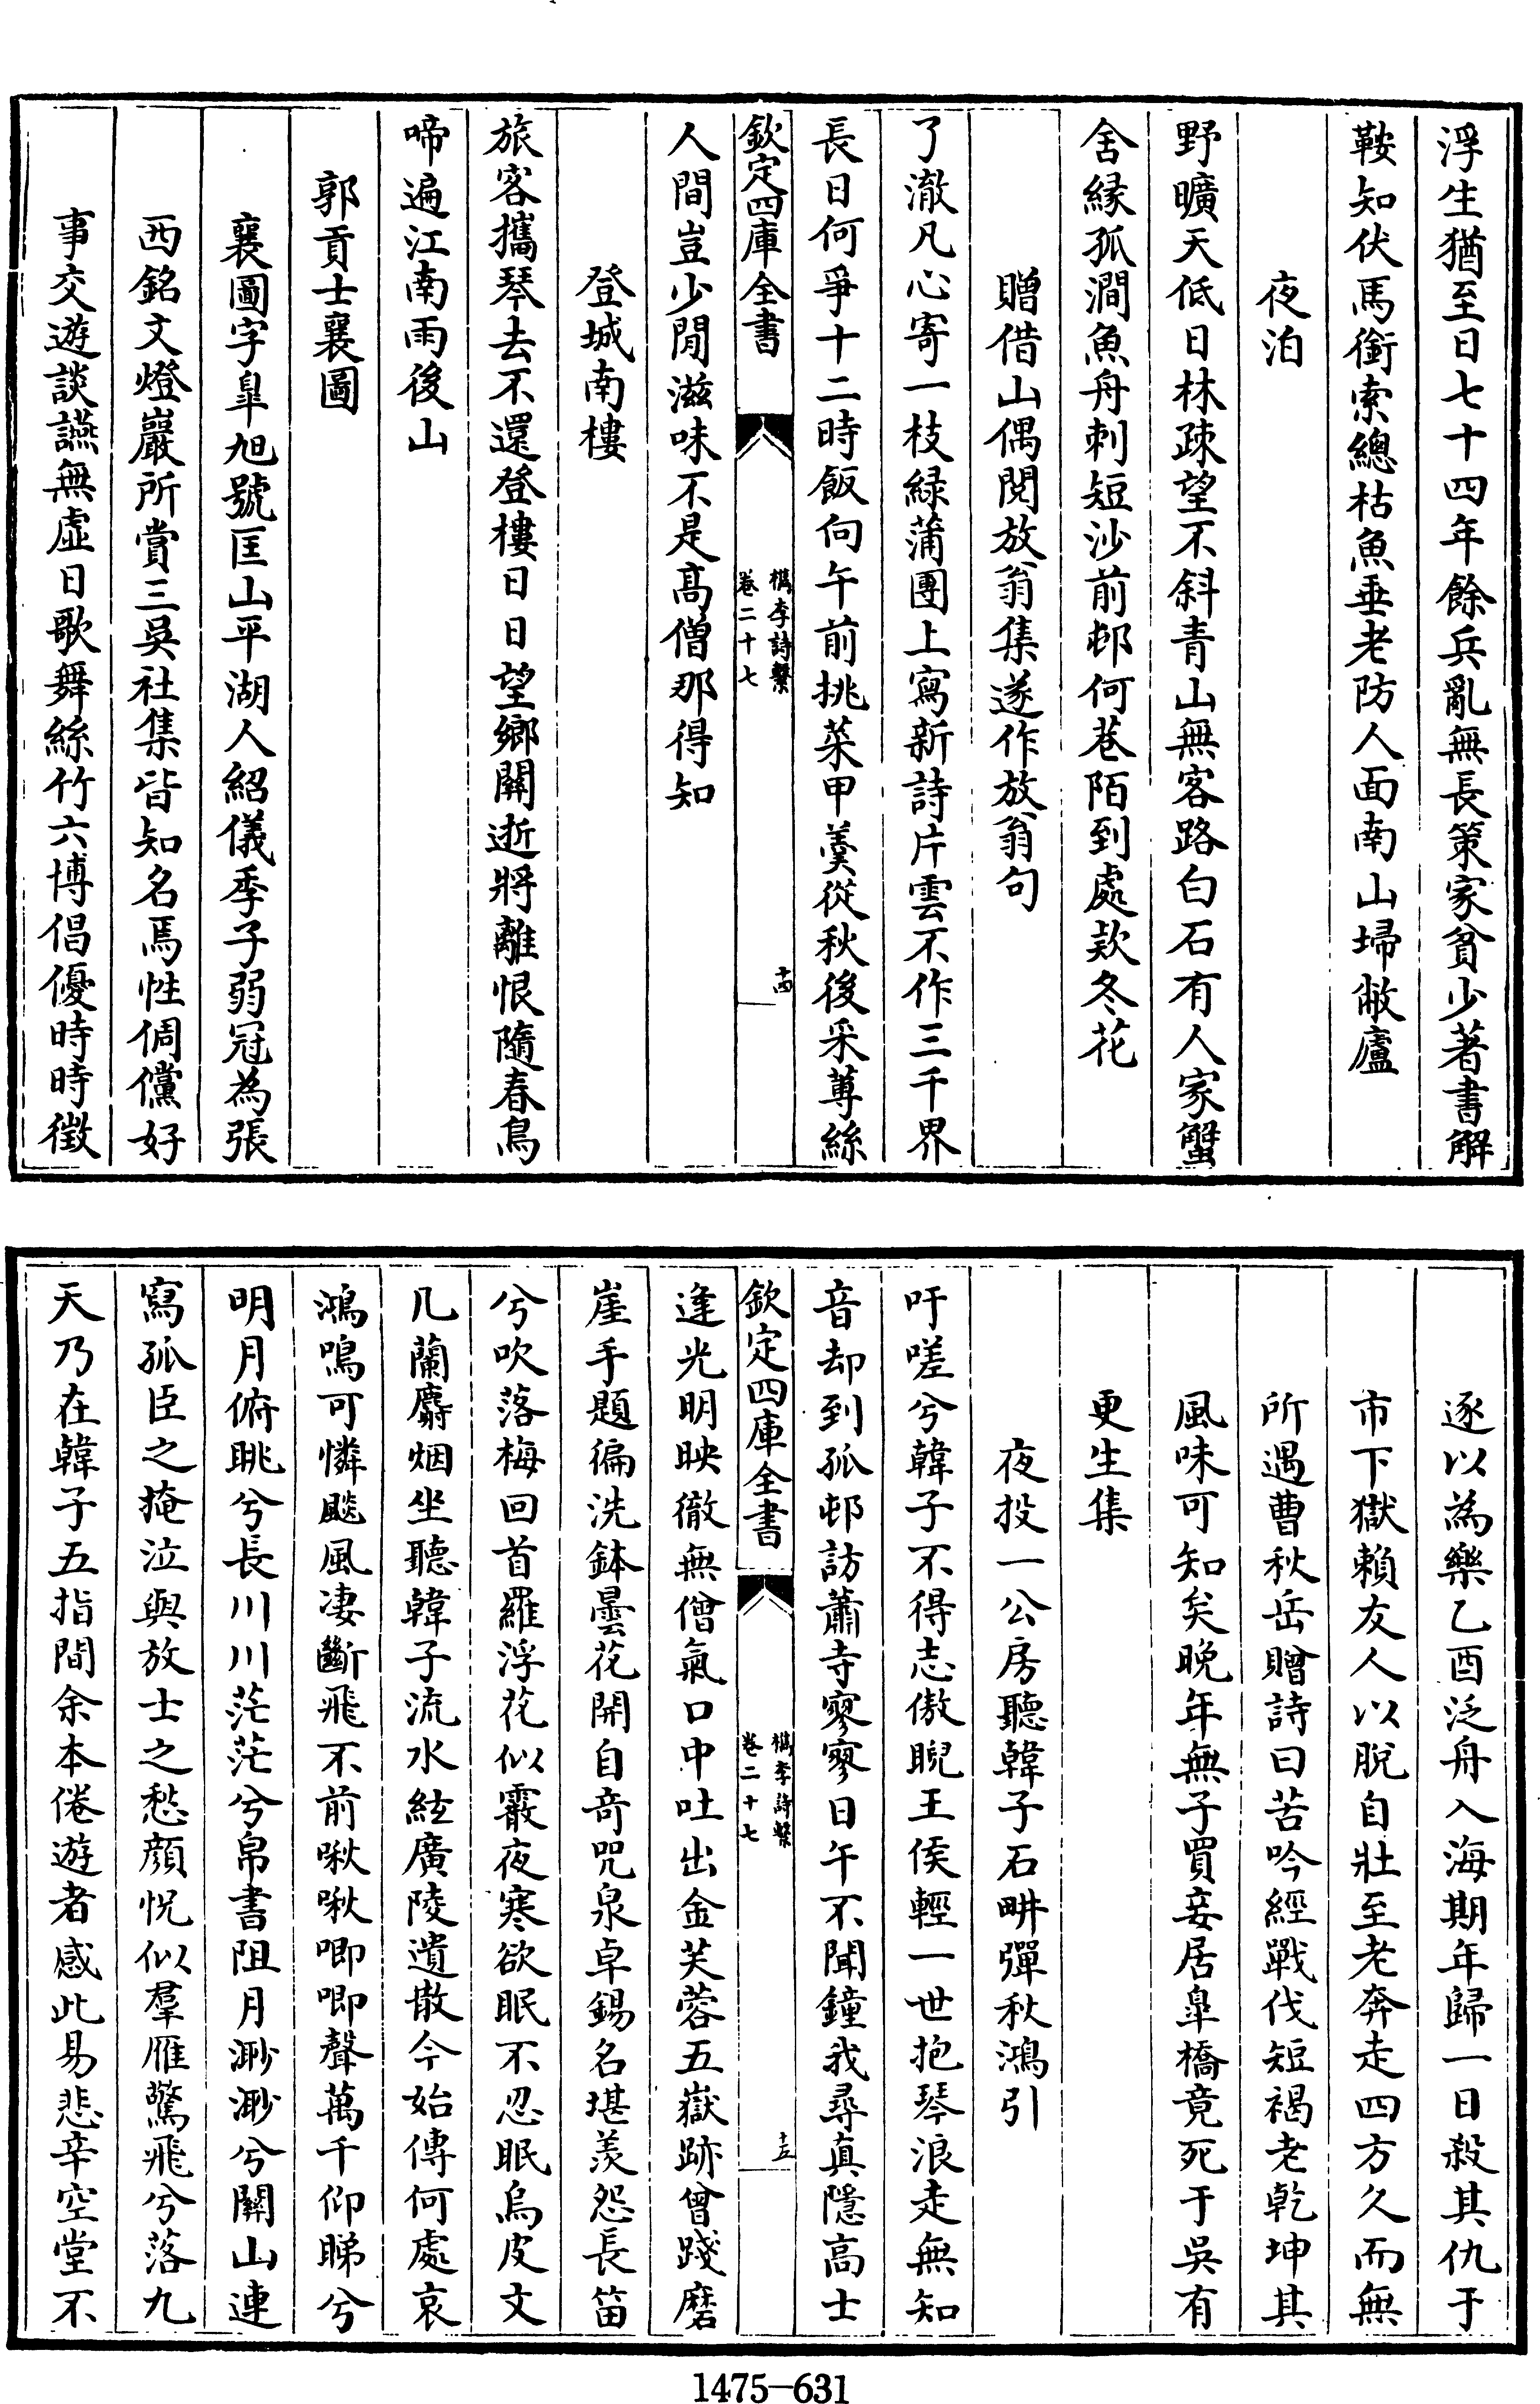 浮生猶至日七十四年餘兵亂無長策家貧少著書解
鞍知伏馬銜索總枯魚垂老防人面南山埽敝廬
夜泊
野曠天低日林疎望不斜青山無客路白石有人家蟹
舍緣孤澗魚舟刺短沙前邨何巷陌到處欵冬花
贈借山偶閱放翁集遂作放翁句
了澈凡心寄一枝緑蒲團上寫新詩片雲不作三千界
長日何爭十二時飯向午前挑菜甲羹從秋後采蓴絲
欽定四庫全書
檇李詩繫
卷二十七
十四
人間豈少閒滋味不是髙僧那得知
登城南樓
旅客攜琴去不還登樓日日望鄉關逝將離恨隨春鳥
啼遍江南雨後山
郭貢士襄圖
襄圖字臯旭號匡山平湖人紹儀季子弱冠為張
西銘文燈巖所賞三吳社集皆知名焉性倜儻好
事交遊談讌無虛日歌舞絲竹六博倡優時時徵
逐以為樂乙酉泛舟入海期年歸一日殺其仇于
市下獄賴友人以脫自壯至老奔走四方久而無
所遇曹秋岳贈詩曰苦吟經戰伐短褐老乾坤其
風味可知矣晚年無子買妾居臯橋竟死于吳有
更生集
夜投一公房聽韓子石畊彈秋鴻引
吁嗟兮韓子不得志傲睨王侯輕一世抱琴浪走無知
音却到孤邨訪蕭寺寥寥日午不聞鐘我尋真隱高士
欽定四庫全書
檇李詩繫
卷二十七
十五
逢光明映徹無僧氣口中吐出金芙蓉五嶽跡曾踐磨
崖手題徧洗鉢曇花開自奇咒泉卓錫名堪羨怨長笛
兮吹落梅回首羅浮花似霰夜寒欲眠不忍眠烏皮文
几蘭麝烟坐聽韓子流水絃廣陵遺散今始傳何處哀
鴻鳴可憐颼風凄斷飛不前啾啾唧唧聲萬千仰睇兮
明月俯眺兮長川川茫茫兮帛書阻月渺渺兮關山連
寫孤臣之掩泣與放士之愁顏怳似羣雁驚飛兮落九
天乃在韓子五指間余本倦遊者感此易悲辛空堂不
1475—631